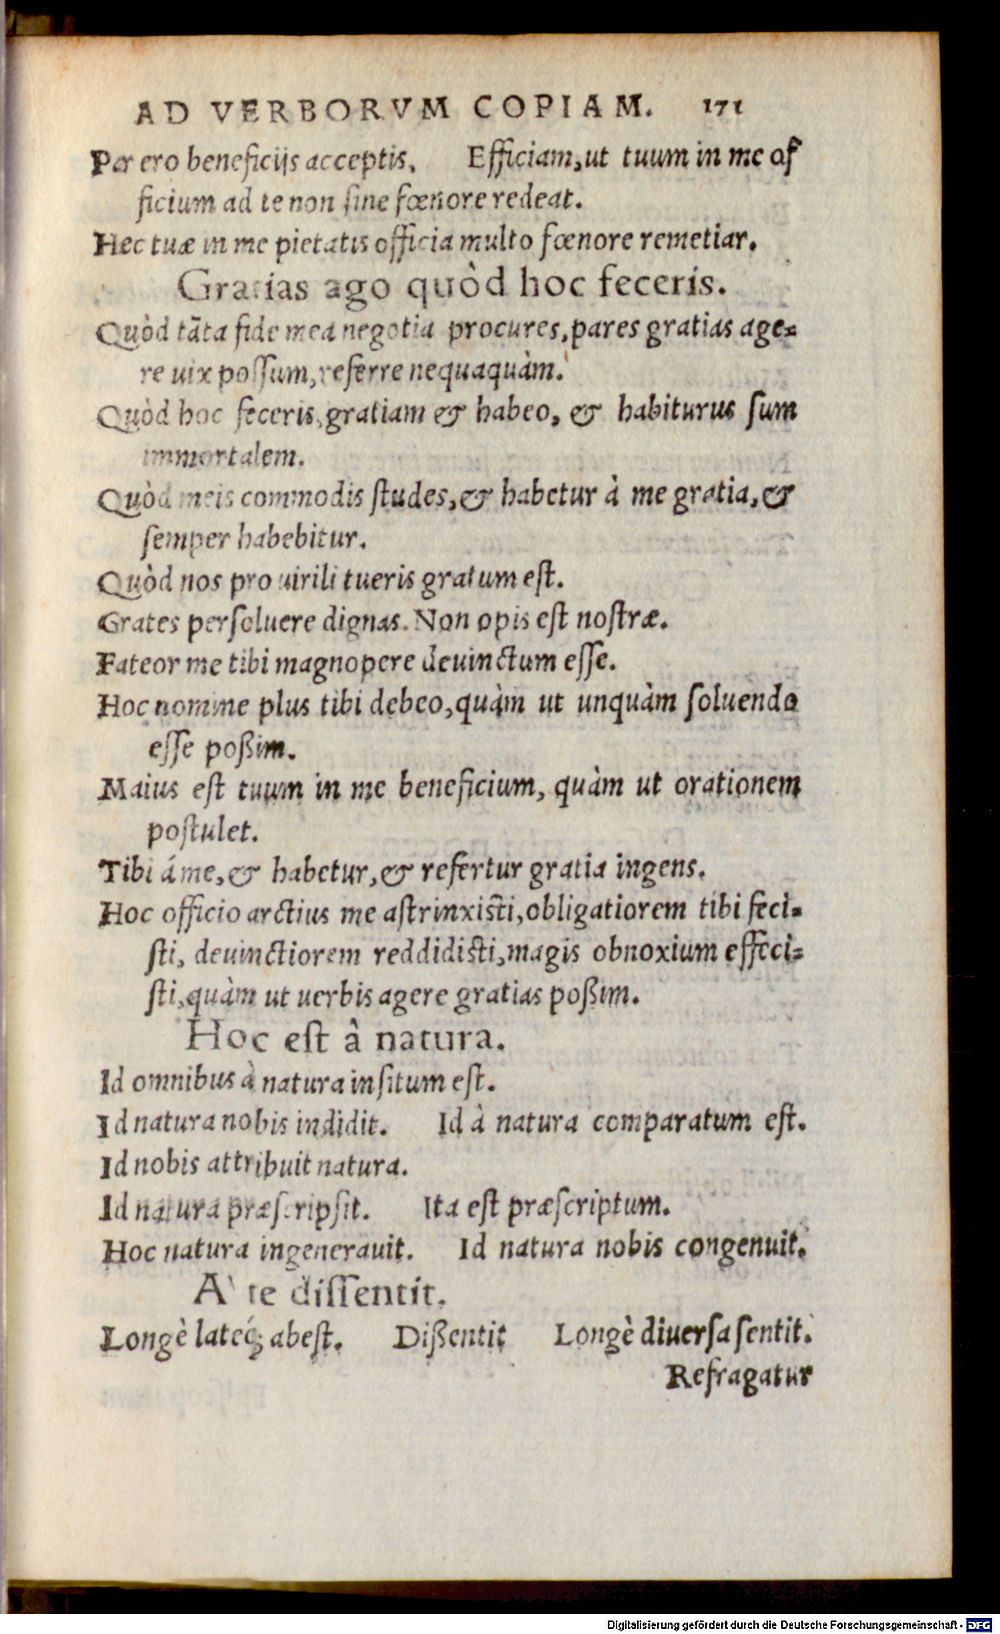 AD VERBORVM COPIAM. 171
Par ero beneficijs acceptis. Efficiam, ut tuum in me of
ficium ad te non sine fœnore redeat.
Hec tuæ in me pietatis officia multo fœnore remetiar.
Gratias ago quòd hoc feceris.
Quòd tāta fide mea negotia procures, pares gratias age=
re uix possum, referre nequaquàm.
Quòd hoc feceris, gratiam & habeo, & habiturus sum
immortalem.
Quòd meis commodis studes, & habetur à me gratia, &
semper habebitur.
Quòd nos pro uirili tueris gratum est.
Grates persoluere dignas. Non opis est nostræ.
Fateor me tibi magnopere deuinctum esse.
Hoc nomine plus tibi debeo, quàm ut unquàm soluendo
esse poßim.
Maius est tuum in me beneficium, quàm ut orationem
postulet.
Tibi á me, & habetur, & refertur gratia ingens.
Hoc officio arctius me astrinxisti, obligatiorem tibi feci=
sti, deuinctiorem reddidisti, magis obnoxium effeci=
sti, quàm ut uerbis agere gratias poßim.
Hoc est â natura.
Id omnibus à natura insitum est.
Id natura nobis indidit. Id à natura comparatum est.
Id nobis attribuit natura.
Id natura præscripsit. Ita est præscriptum.
Hoc natura ingenerauit. Id natura nobis congenuit.
A' te dissentit.
Longè lateq́; abest. Dißentit Longè diuersa sentit.
Refragatur
Digitalisierung gefördert durch die Deutsche Forschungsgemeinschaft - DFG